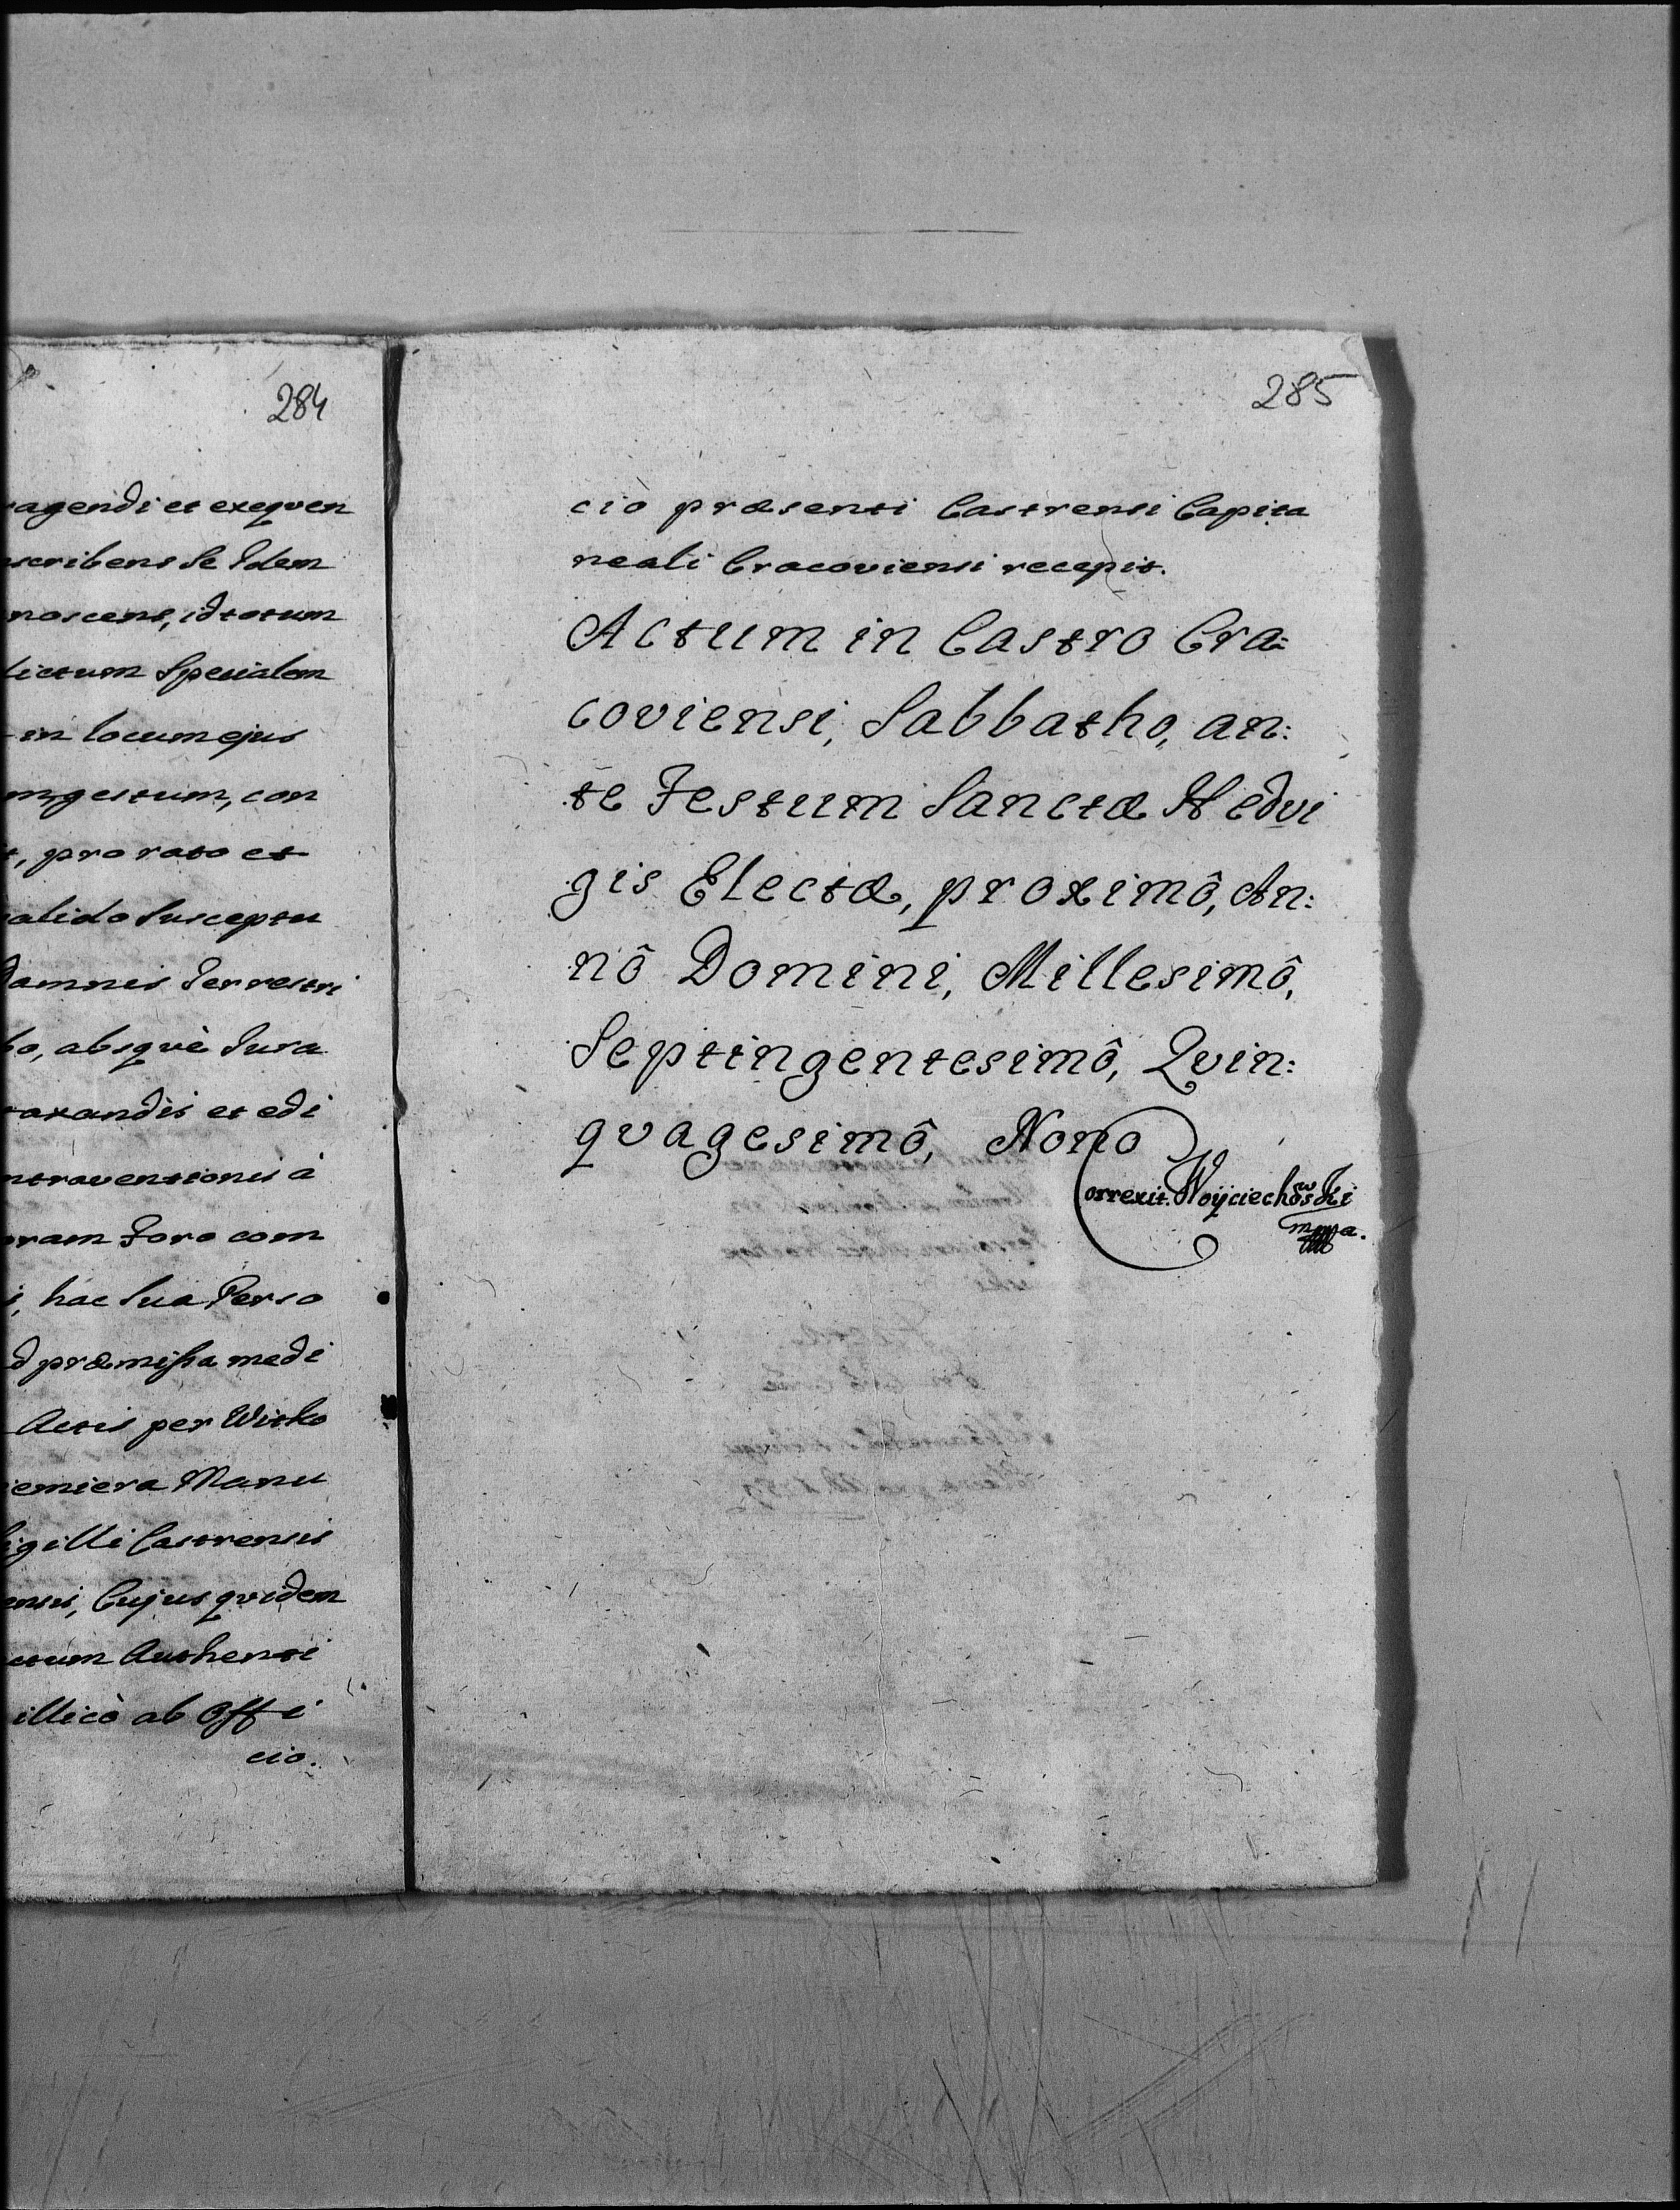 284
agendi et exequen
scribens Se Idem
noscens, id totum
lictum Specialem
in locum ejus
m, gestum, con
t, pro rato et
alido Susceptu
Damnis Terrestri
bo, absqvè Jura
axandis et edi
ntraventionis à
oram Foro com
i, hac Sua Perso
d præmissa medi
Actis per Witko
iemiera Manu
Sigilli Castrensis
ensis, Cujus qvidem
ctum Authenti
illicò ab Offi
cio.
285
ciô præsenti Castrensi Capita
neali Cracoviensi recepit.
Actum in Castro Cra:
coviensi, Sabbatho, an:
te Festum Sanctæ Hedvi
gis Electæ, proximô, An:
nô Domini, Millesimô,
Septingentesimô, Qvin:
qvagesimô, Nono
Correxit. Woyciechowski
mppa.